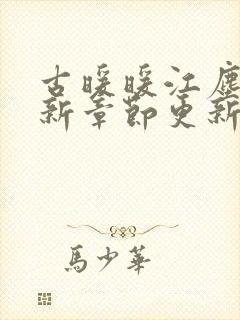 古暖暖江塵
新章節更新
馬少華